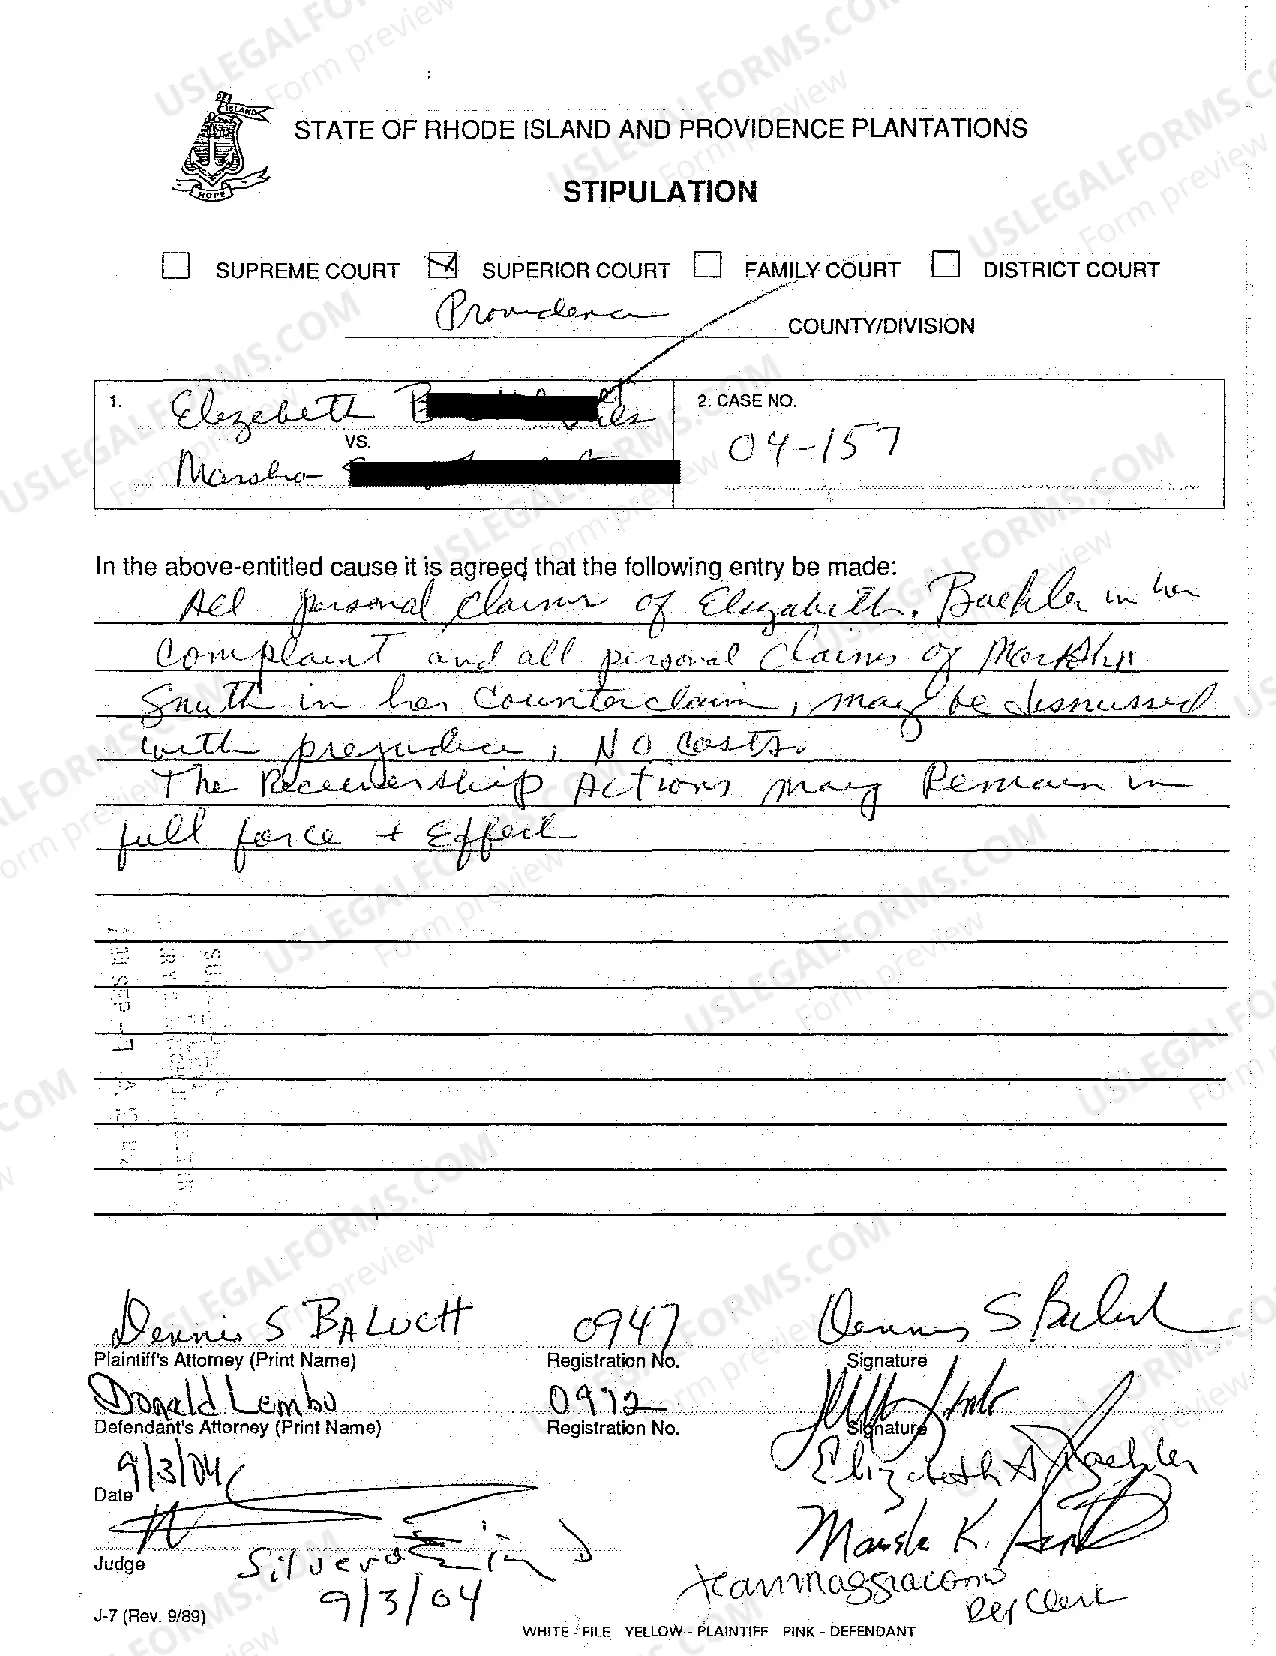 STATE OF RHODE ISLAND AND PROVIDENCE PLANTATIONS
STIPULATION
SUPREME COURT SUPERIOR COURT FAMILY COURT DISTRICT COURT
Providence COUNTY/DIVISION
1. Elizabeth B
2. CASE NO.
VS.
04-157
Marsha
In the above-entitled cause it is agreed that the following entry be made:
All personal claims of Elizabeth Baehler in her
Complaint and all personal claims of Marsha
Smith in her Counterclaim, may be dismissed
with prejudice, No Costs.
The Receivership Actions may Remain in
full force + Effect
Dennis S BALUCH 0947 Dennis S Baluch
Plaintiff's Attorney (Print Name) Registration No. Signature
Donald Lembo 0972
Defendant's Attorney (Print Name) Registration No. Signature
9/3/04 Elizabeth A Baehler
Date
Marsha K.
Judge
9/3/04
J-7 (Rev. 9/89)
WHITE - FILE YELLOW - PLAINTIFF PINK - DEFENDANT
USLEGALFORMS.COM
Form preview